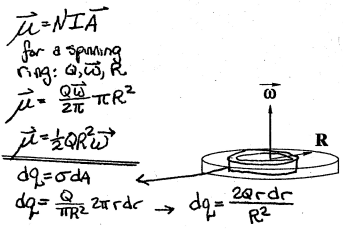 μ⃗ = NIA⃗
for a spinning
ring: Q, ω⃗, R
μ⃗ = Qω⃗/2π πR²
μ⃗ = ½QR²ω⃗
dq = σdA
dq = Q/πR² 2πrdr → dq = 2Qrdr/R²
ω⃗
R